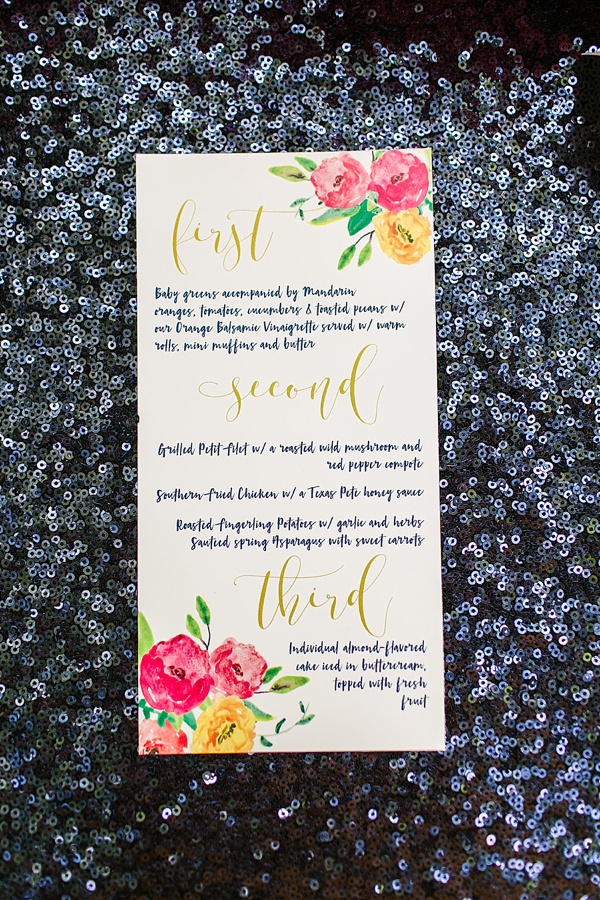 first
Baby greens accompanied by Mandarin
oranges, tomatoes, cucumbers & toasted pecans w/
our Orange Balsamic Vinaigrette served w/ warm
rolls, mini muffins and butter
second
Grilled Petit filet w/ a roasted wild mushroom and
red pepper compote
Southern-fried Chicken w/ a Texas Pete honey sauce
Roasted fingerling Potatoes w/ garlic and herbs
Sauteed spring Asparagus with sweet carrots
third
Individual almond-flavored
cake iced in buttercream,
topped with fresh
fruit